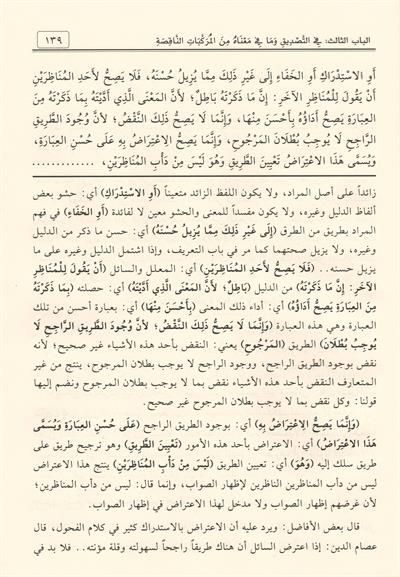 الباب الثالث: فِي التَّصْدِيقِ وَمَا فِي مَعْنَاهُ مِنَ الْمُرَكَّبَاتِ النَّاقِصَةِ
١٣٩
أَوِ الِاسْتِدْرَاكِ أَوِ الْخَفَاءِ إِلَى غَيْرِ ذَلِكَ مِمَّا يُزِيلُ حُسْنَهُ، فَلَا يَصِحُّ لِأَحَدِ الْمُنَاظِرَيْنِ
أَنْ يَقُولَ لِلْمُنَاظِرِ الْآخَرِ: إِنَّ مَا ذَكَرْتَهُ بَاطِلٌ؛ لِأَنَّ الْمَعْنَى الَّذِي أَدَّيْتَهُ بِمَا ذَكَرْتَهُ مِنَ
الْعِبَارَةِ يَصِحُّ أَدَاؤُهُ بِأَحْسَنَ مِنْهَا، وَإِنَّمَا لَا يَصِحُّ ذَلِكَ النَّقْضُ؛ لِأَنَّ وُجُودَ الطَّرِيقِ
الرَّاجِحِ لَا يُوجِبُ بُطْلَانَ الْمَرْجُوحِ، وَإِنَّمَا يَصِحُّ الِاعْتِرَاضُ بِهِ عَلَى حُسْنِ الْعِبَارَةِ،
وَيُسَمَّى هَذَا الِاعْتِرَاضُ تَعْيِينَ الطَّرِيقِ وَهُوَ لَيْسَ مِنْ دَأْبِ الْمُنَاظِرَيْنِ، .............
زائداً على أصل المراد، ولا يكون اللفظ الزائد متعيناً (أَوِ الِاسْتِدْرَاكِ) أي: حشو بعض
ألفاظ الدليل وغيره، ولا يكون مفسداً للمعنى والحشو معين لا لفائدة (أَوِ الْخَفَاءِ) في فهم
المراد بطريق من الطرق (إِلَى غَيْرِ ذَلِكَ مِمَّا يُزِيلُ حُسْنَهُ) أي: حسن ما ذكر من الدليل
وغيره، ولا يزيل صحتهما كما مر في باب التعريف، وإذا اشتمل الدليل وغيره على ما
يزيل حسنه.. (فَلَا يَصِحُّ لِأَحَدِ الْمُنَاظِرَيْنِ) أي: المعلل والسائل (أَنْ يَقُولَ لِلْمُنَاظِرِ
الْآخَرِ: إِنَّ مَا ذَكَرْتَهُ) من الدليل (بَاطِلٌ؛ لِأَنَّ الْمَعْنَى الَّذِي أَدَّيْتَهُ) أي: حصلته (بِمَا ذَكَرْتَهُ
مِنَ الْعِبَارَةِ يَصِحُّ أَدَاؤُهُ) أي: أداء ذلك المعنى (بِأَحْسَنَ مِنْهَا) أي: بعبارة أحسن من تلك
العبارة وهي هذه العبارة (وَإِنَّمَا لَا يَصِحُّ ذَلِكَ النَّقْضُ؛ لِأَنَّ وُجُودَ الطَّرِيقِ الرَّاجِحِ لَا
يُوجِبُ بُطْلَانَ) الطريق (الْمَرْجُوحِ) يعني: النقض بأحد هذه الأشياء غير صحيح؛ لأنه
نقض بوجود الطريق الراجح، ووجود الراجح لا يوجب بطلان المرجوح، ينتج من غير
المتعارف النقض بأحد هذه الأشياء نقض بما لا يوجب بطلان المرجوح ونضم إليها
قولنا: وكل نقض بما لا يوجب بطلان المرجوح غير صحيح.
(وَإِنَّمَا يَصِحُّ الِاعْتِرَاضُ بِهِ) أي: بوجود الطريق الراجح (عَلَى حُسْنِ الْعِبَارَةِ وَيُسَمَّى
هَذَا الِاعْتِرَاضُ) أي: الاعتراض بأحد هذه الأمور (تَعْيِينَ الطَّرِيقِ) وهو ترجيح طريق على
طريق سلك إليه (وَهُوَ) أي: تعيين الطريق (لَيْسَ مِنْ دَأْبِ الْمُنَاظِرَيْنِ) ينتج هذا الاعتراض
ليس من دأب المناظرين الناظرين لإظهار الصواب، وإنما قال: ليس من دأب المناظرين؛
لأن غرضهم إظهار الصواب ولا مدخل لهذا الاعتراض في إظهار الصواب.
قال بعض الأفاضل: ويرد عليه أن الاعتراض بالاستدراك كثير في كلام الفحول، قال
عصام الدين: إذا اعترض السائل أن هناك طريقاً راجحاً لسهولته وقلة مؤنته.. فلا بد في